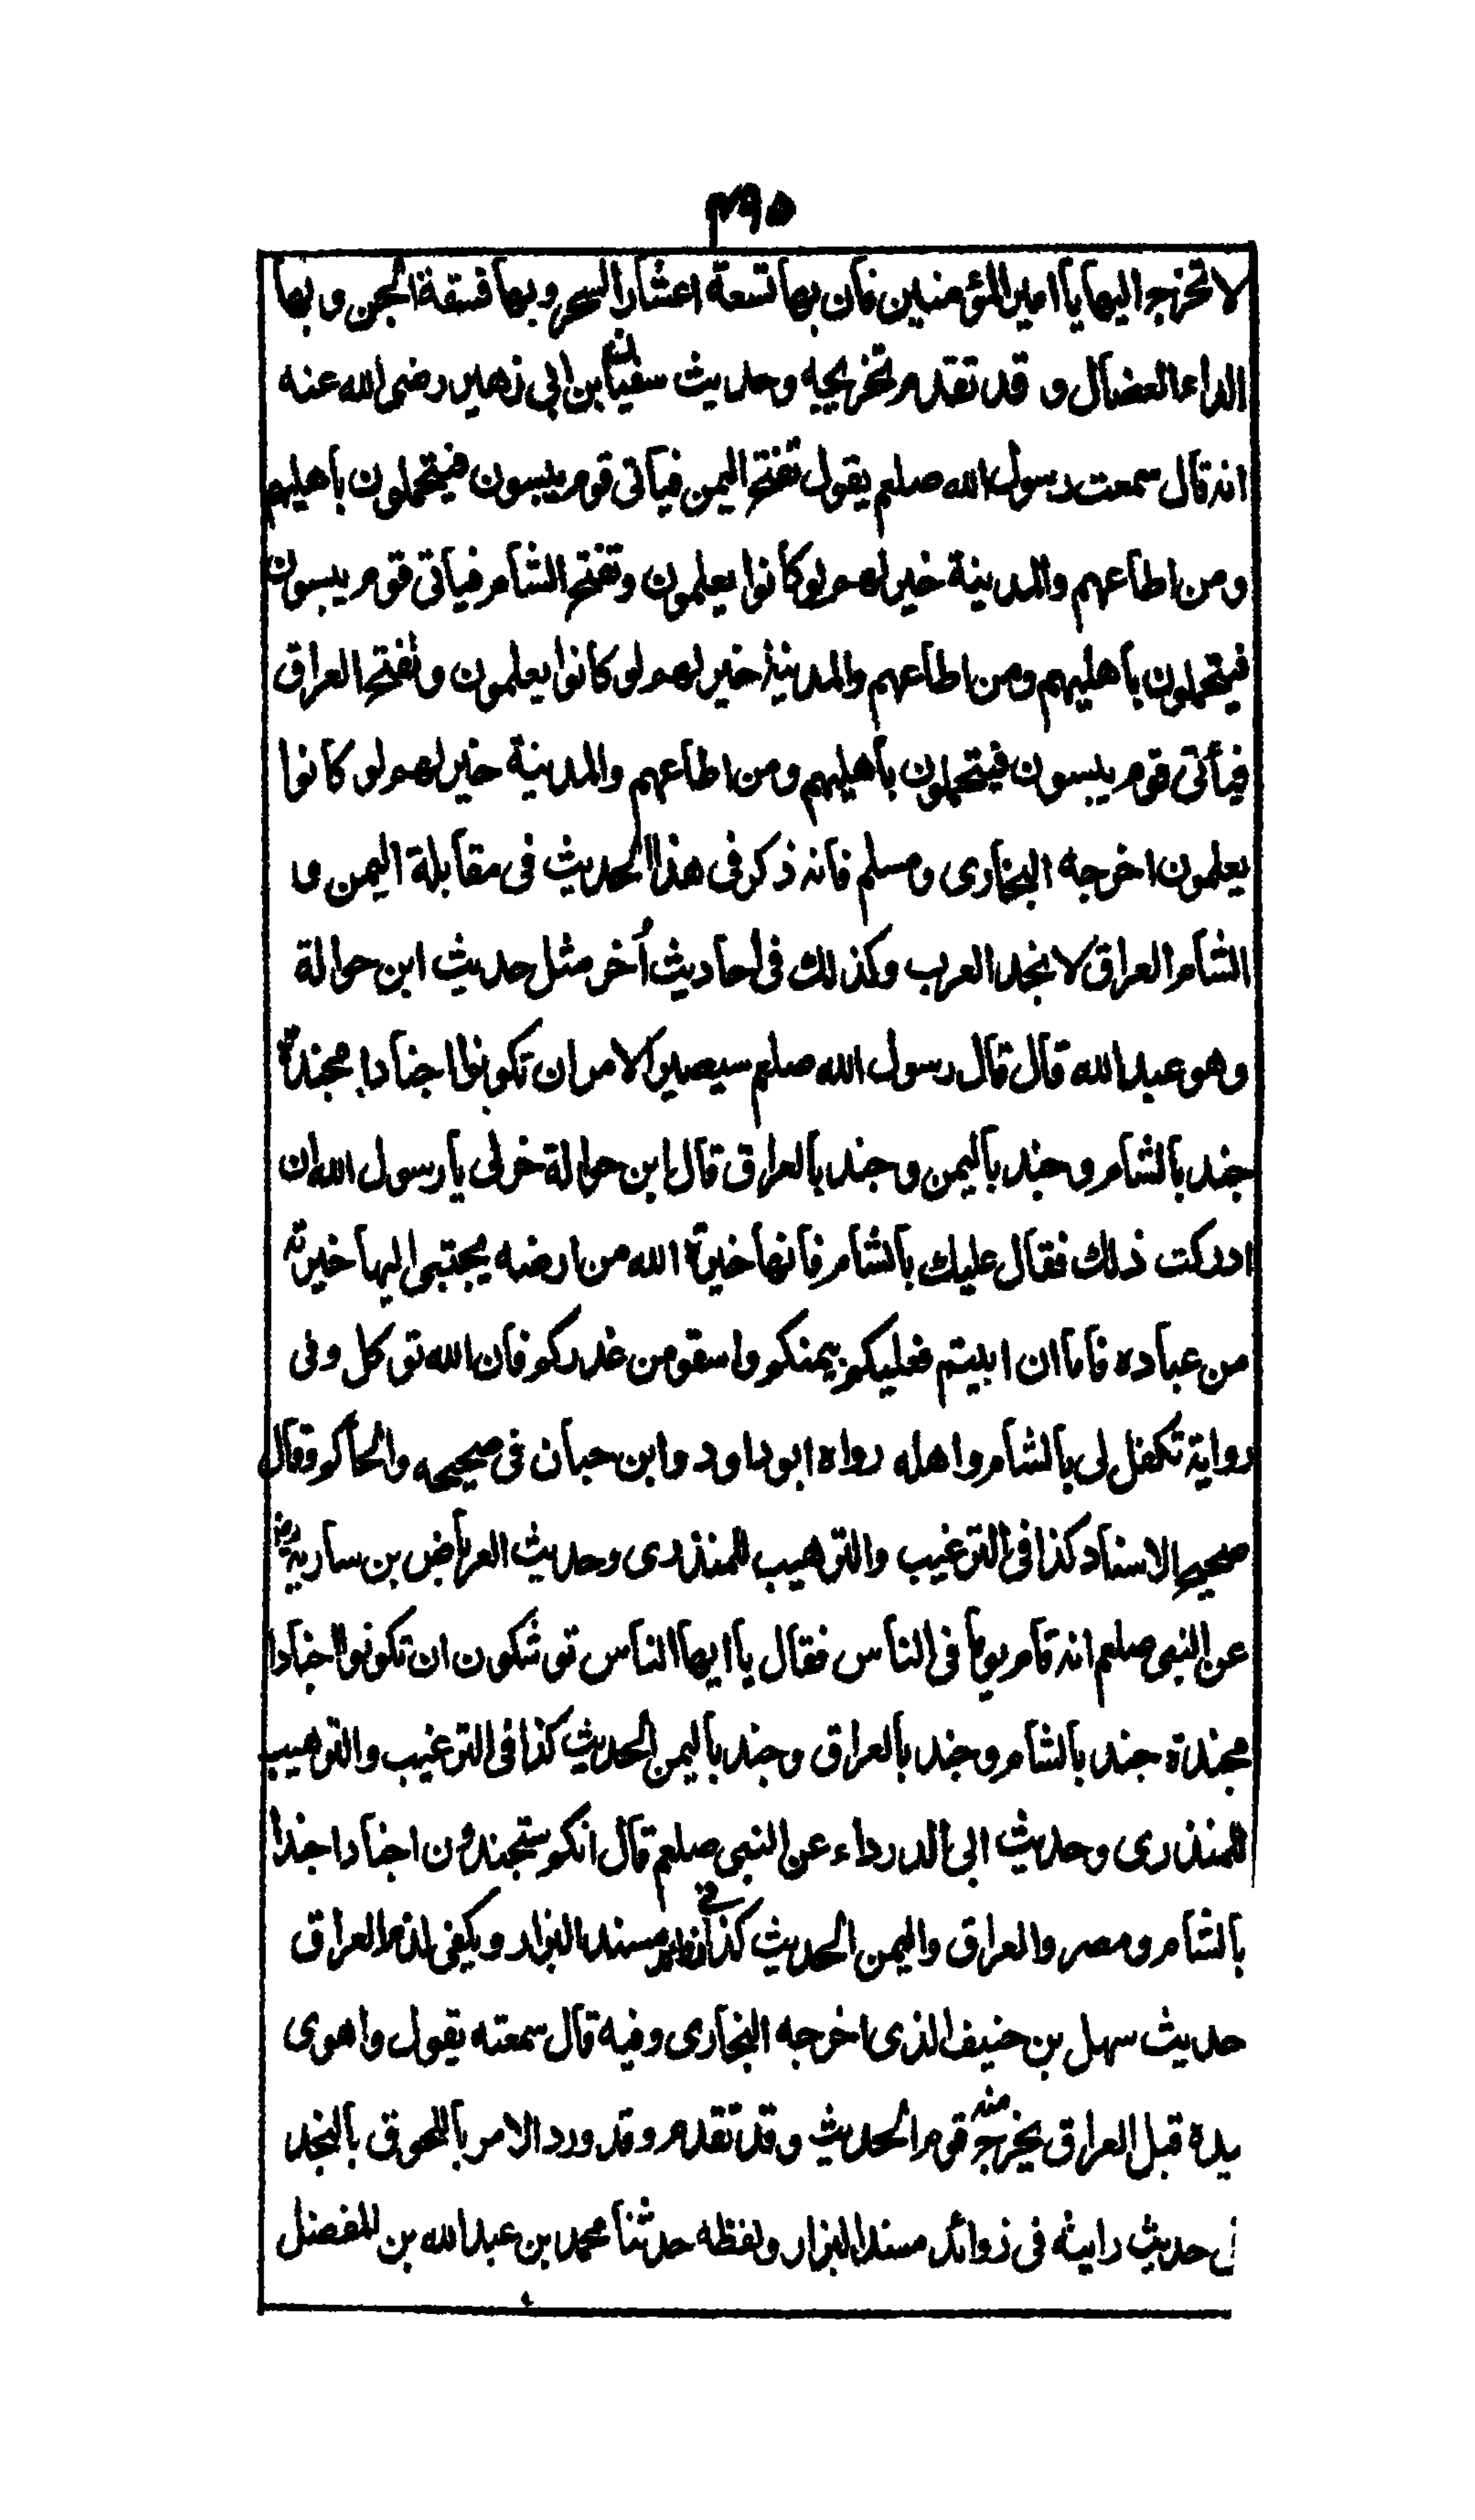 ٣٩٥
لا تخرج اليها يا امير المؤمنين فان بها تسعة اعشار السحر وبها فسقة الجن وبها
الداء العضال و قد تقدم تخريجه وحديث سفيان بن ابي زهير رضي الله عنه
انه قال سمعت رسول الله صلعم يقول تفتح اليمن فياتي قوم يبسون فيتحملون باهليهم
ومن اطاعهم والمدينة خير لهم لو كانوا يعلمون وتفتح الشام فياتي قوم يبسون
فيتحملون باهليهم ومن اطاعهم والمدينة خير لهم لو كانوا يعلمون وتفتح العراق
فيأتي قوم يبسون فيتحملون باهليهم ومن اطاعهم والمدينة خير لهم لو كانوا
يعلمون اخرجه البخاري ومسلم فانه ذكر في هذا الحديث في مقابلة اليمن و
الشام العراق لا نجد العرب وكذلك في احاديث أخر مثل حديث ابن حوالة
وهو عبد الله قال قال رسول الله صلعم سيصير الامر ان تكونوا اجنادا مجندة
جند بالشام وجند باليمن وجند بالعراق قال ابن حوالة خر لي يا رسول الله ان
ادركت ذلك فقال عليك بالشام فانها خيرة الله من ارضه يجتبي اليها خيرته
من عباده فاما ان ابيتم فعليكم بيمنكم واسقوا من غدركم فان الله توكل وفي
رواية تكفل لي بالشام واهله رواه ابو داود وابن حبان في صحيحه والحاكم وقال
صحيح الاسناد كذا في الترغيب والترهيب للمنذري وحديث العرباض بن سارية رض
عن النبي صلعم انه قام يوما في الناس فقال يا ايها الناس توشكون ان تكونوا اجنادا
مجندة جند بالشام وجند بالعراق وجند باليمن الحديث كذا في الترغيب والترهيب
للمنذري وحديث ابي الدرداء عن النبي صلعم قال انكم ستجندون اجنادا جندا
بالشام ومصر والعراق واليمن الحديث كذا في زوائد مسند البزار ويكفي لذم العراق
حديث سهل بن حنيف الذي اخرجه البخاري وفيه قال سمعته يقول واهوى
يده قبل العراق يخرج منه قوم الحديث وقد تقدم وقد ورد الامر باللحوق بالنجد
حديث رايته في زوائد مسند البزار ولفظه حدثنا محمد بن عبد الله بن المفضل